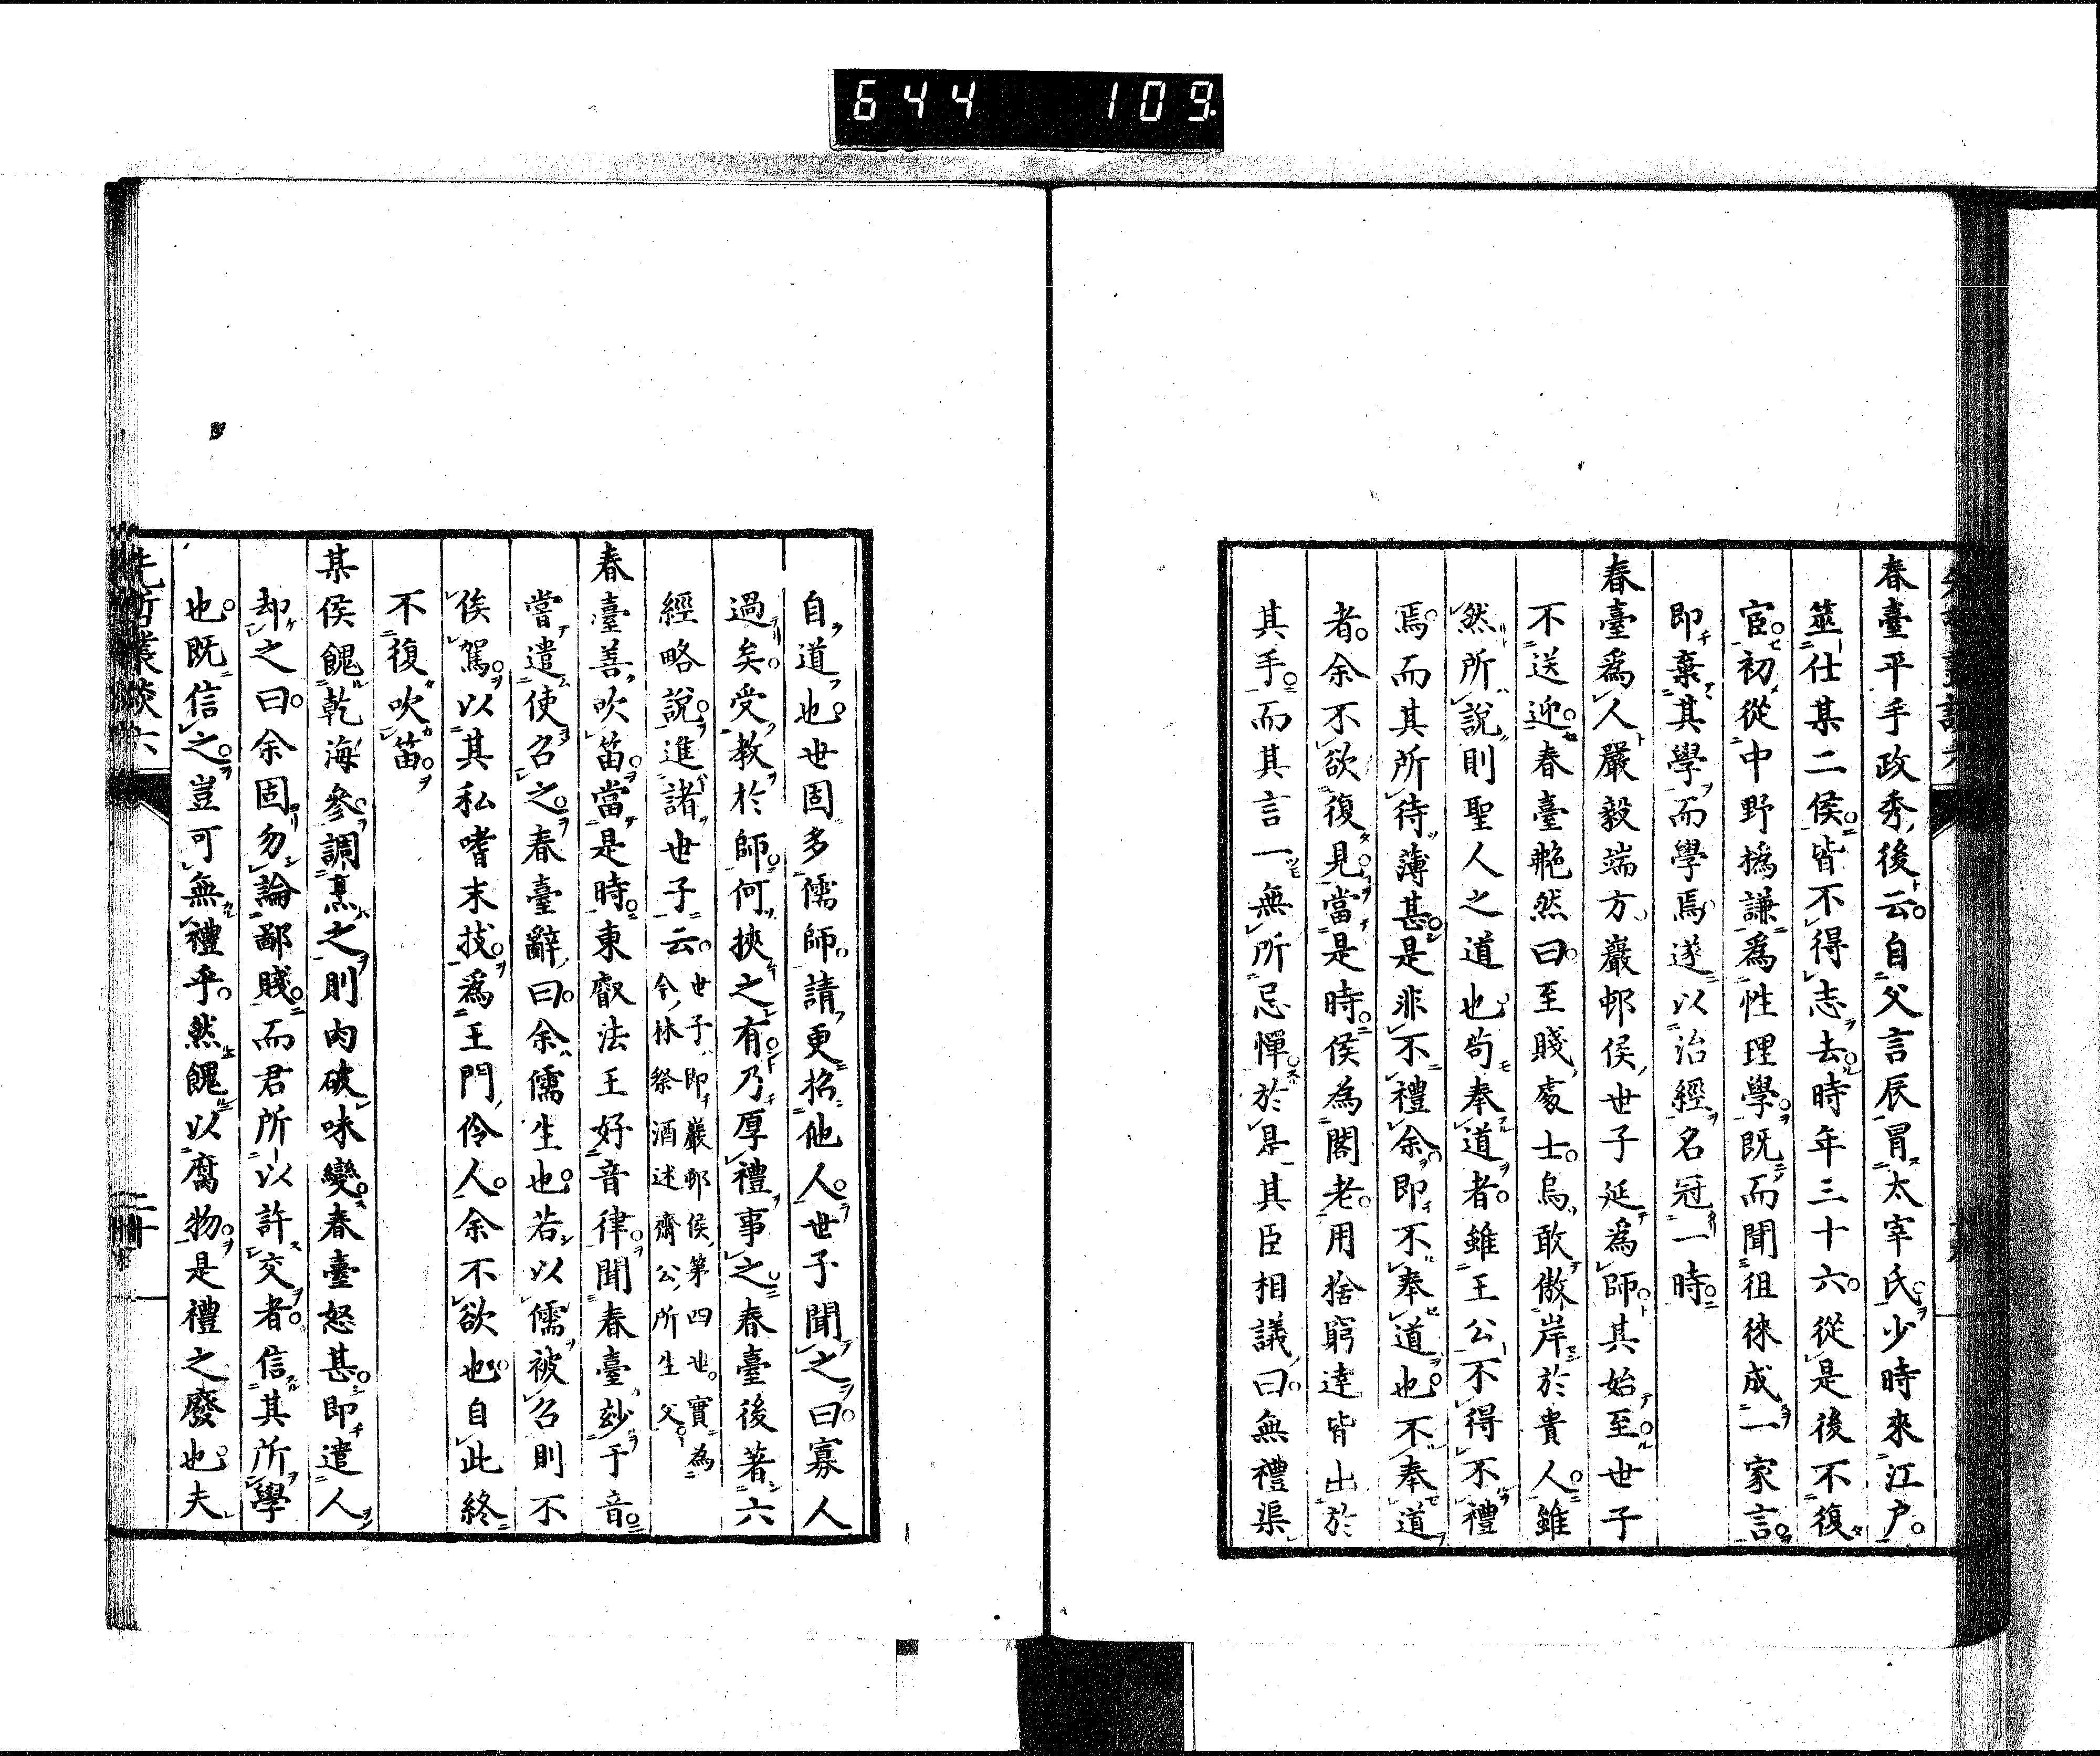 644 109
春臺平手政秀後云自父言辰冐太宰氏少時來江戶
筮仕某二侯皆不得志去時年三十六從是後不復
宦初從中野撝謙爲性理學既而聞徂徠成一家言
即棄其學而學焉遂以治經名冠一時
春臺爲人嚴毅端方巖邨侯世子延爲師其始至世子
不送迎春臺艴然曰至賤處士烏敢傲岸於貴人雖
然所說則聖人之道也苟奉道者雖王公不得不禮
焉而其所待薄甚是非不禮余即不奉道也不奉道
者余不欲復見當是時侯為閣老用捨窮達皆出於
其手而其言一無所忌憚於是其臣相議曰無禮渠
自道也世固多儒師請更招他人世子聞之曰寡人
過矣受教於師何挾之有乃厚禮事之春臺後著六
經略說進諸世子云世子即巖邨侯第四世實為
今林祭酒述齋公所生父
春臺善吹笛當是時東叡法王好音律聞春臺玅于音
嘗遣使召之春臺辭曰余儒生也若以儒被召則不
俟駕以其私嗜末技爲王門伶人余不欲也自此終
不復吹笛
某侯餽乾海參調烹之則肉破味變春臺怒甚即遣人
却之曰余固勿論鄙賤而君所以許交者信其所學
也既信之豈可無禮乎然餽以腐物是禮之廢也夫
先哲叢談六